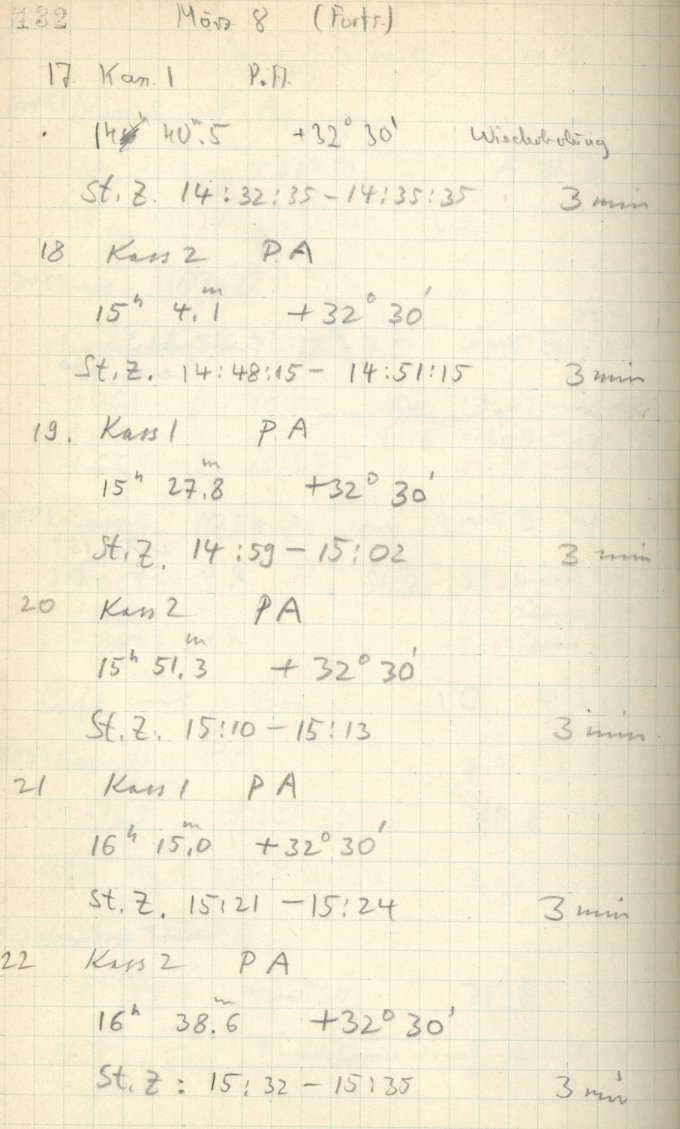 132 März 8 (Forts.)
17 Kass. 1 P.A.
14h 40m.5 +32° 30' Wiederholung
St. Z. 14:32:35 - 14:35:35 3 min
18 Kass 2 PA
15h 4.m1 +32° 30'
St. Z. 14:48:15 - 14:51:15 3 min
19. Kass 1 PA
15h 27.m8 +32° 30'
St. Z. 14:59 - 15:02 3 min
20 Kass 2 PA
15h 51.m3 +32° 30'
St. Z. 15:10 - 15:13 3 min
21 Kass 1 PA
16h 15.m0 +32° 30'
St. Z. 15:21 - 15:24 3 min
22 Kass 2 PA
16h 38.m6 +32° 30'
St. Z: 15:32 - 15:35 3 min